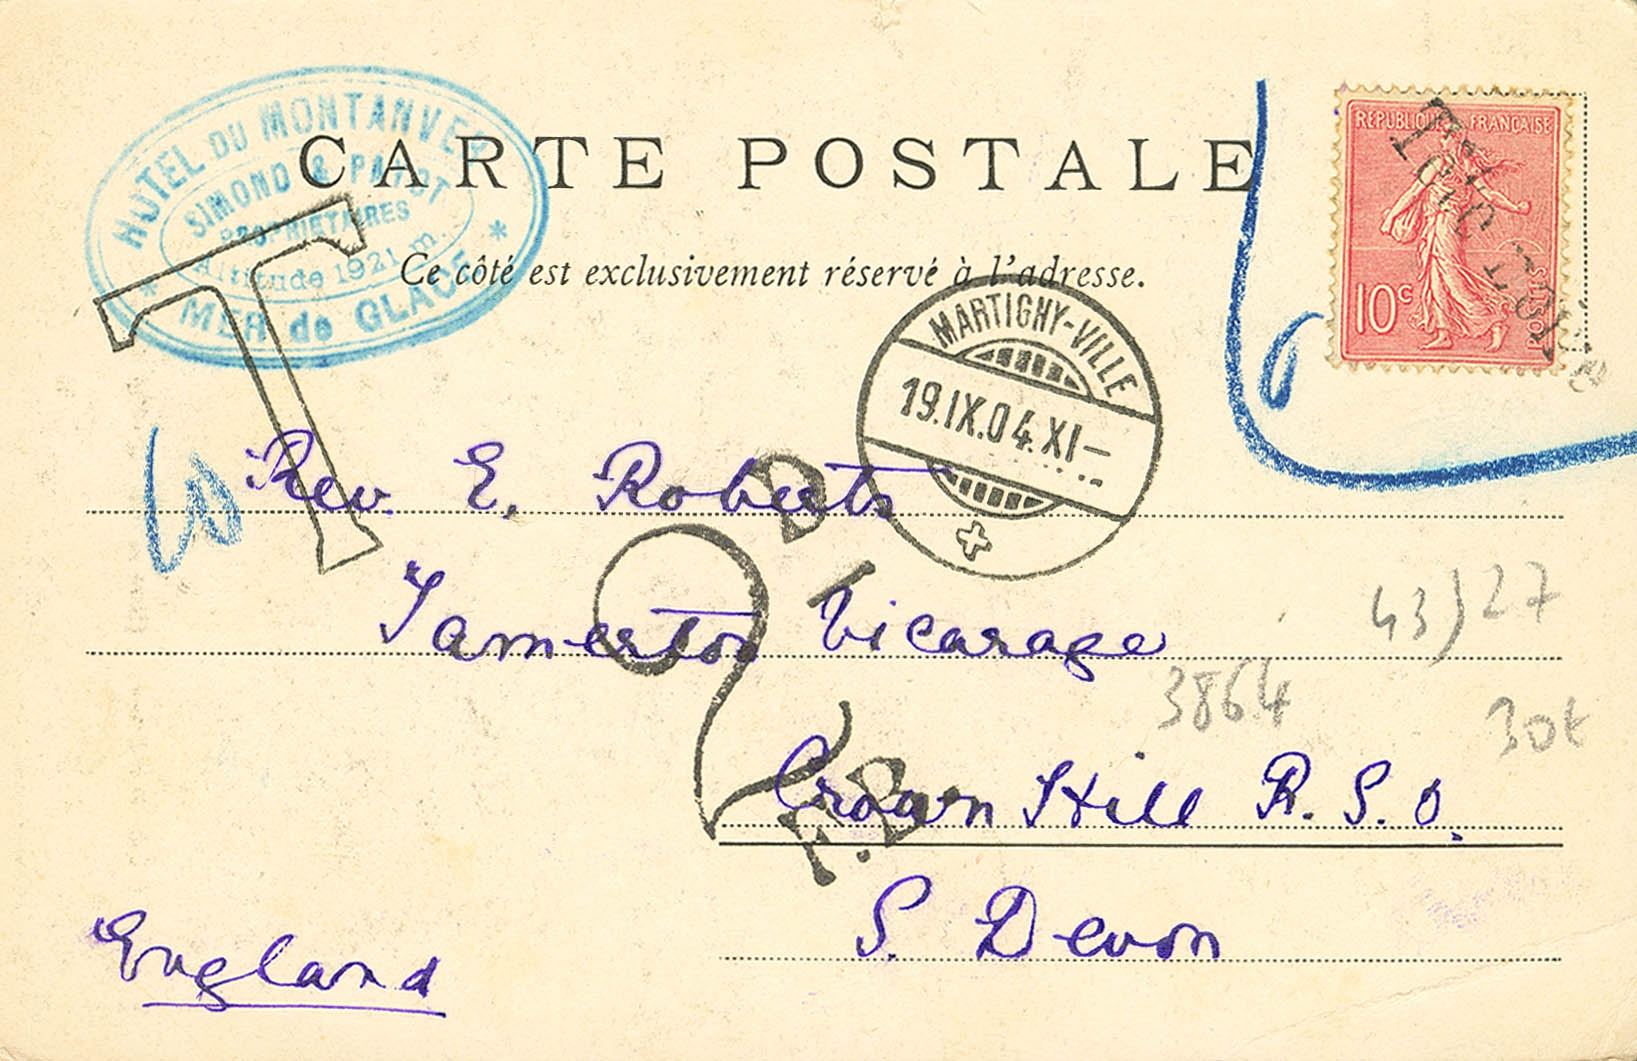 HOTEL DU MONTANVERT
SIMOND & PAYOT
PROPRIETAIRES
Altitude 1921 m.
* MER de GLACE *
CARTE POSTALE
Ce côté est exclusivement réservé à l'adresse.
REPUBLIQUE FRANÇAISE
10c
POSTES
T
MARTIGNY-VILLE
19.IX.04.XI–
Rev. E. Roberts
Tamerton Vicarage
Crown Hill R.S.O.
S. Devon
England
43) 27
3864
2D
F.B